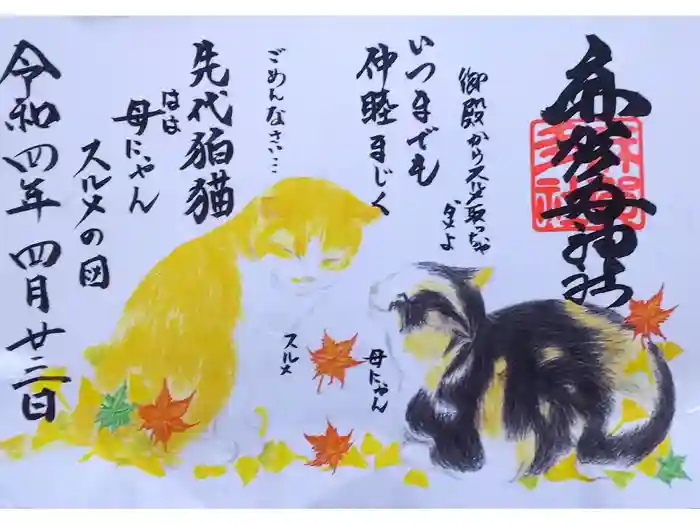 御殿からスルメ取っちゃ
ダメよ
いつまでも
仲睦まじく
ごめんなさい…
先代狛猫
はは
母にゃん
スルメの図
令和四年 四月廿三日
スルメ
母にゃん